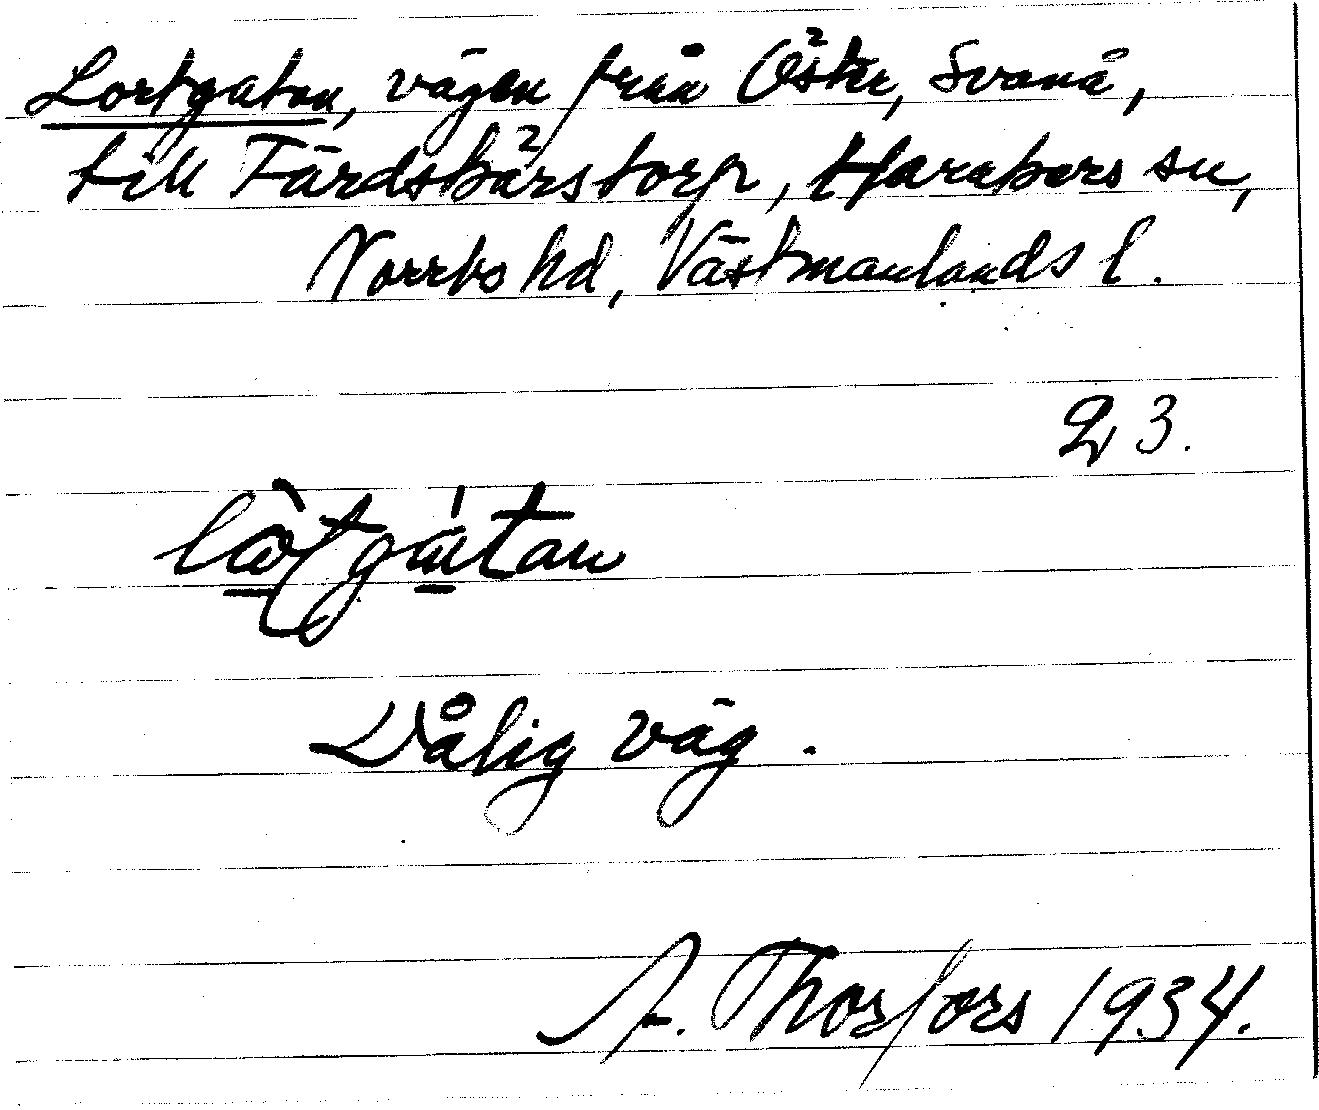 Lortgatan, vägen från Öster, Svanå,
till Färdskärstorp, Haraker sn,
Norrbo hd, Västmanlands l.
23.
Dålig väg.
A. Thorfors 1934.